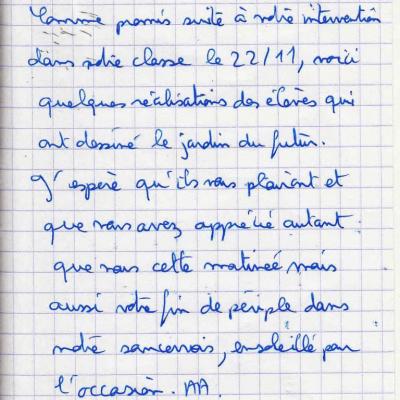 Comme promis suite à votre intervention
dans notre classe le 22/11, voici
quelques réalisations des élèves qui
ont dessiné le jardin du futur.
J'espère qu'ils vous plairont et
que vous avez apprécié autant
que nous cette matinée mais
aussi votre fin de périple dans
notre sancerrois, ensoleillé pour
l'occasion. AA.